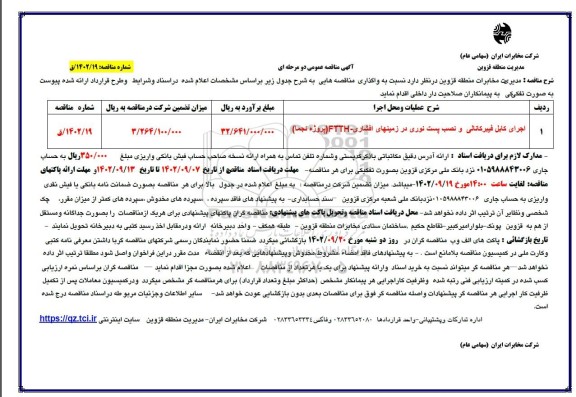 شرکت مخابرات ایران (سهامی عام)
مدیریت منطقه قزوین
آگهی مناقصه عمومی دو مرحله ای
شماره مناقصه: ۱۴۰۲/۱۹/ق
شرح مناقصه : مدیریت مخابرات منطقه قزوین درنظر دارد نسبت به واگذاری مناقصه هایی به شرح جدول زیر براساس مشخصات اعلام شده دراسناد وشرایط وطرح قرارداد ارائه شده پیوست
به صورت تفکیکی به پیمانکاران صلاحیت دار داخلی اقدام نماید
ردیف
شرح عملیات ومحل اجرا
مبلغ برآورد به ریال
میزان تضمین شرکت درمناقصه به ریال
شماره مناقصه
۱
اجرای کابل فیبرکانالی و نصب پست نوری در زمینهای افشاری-FTTH(پروژه نجما)
۳۲/۶۴۱/۰۰۰/۰۰۰
۳/۲۶۴/۱۰۰/۰۰۰
۱۴۰۲/۱۹/ق
- مدارک لازم برای دریافت اسناد : ارائه آدرس دقیق مکاتباتی باذکرکدپستی وشماره تلفن تماس به همراه ارائه نسخه صاحب حساب فیش بانکی واریزی مبلغ ۳۵۰/۰۰۰ریال به حساب
جاری ۰۱۰۵۹۸۸۸۴۳۰۰۶ نزد بانک ملی مرکزی قزوین بصورت تفکیکی برای هر مناقصه – مهلت دریافت اسناد مناقصه: از تاریخ ۱۴۰۲/۰۹/۰۷ تا تاریخ ۱۴۰۲/۰۹/۱۳ و مهلت ارائه پاکتهای
مناقصه: لغایت ساعت ۱۴:۰۰مورخ ۱۴۰۲/۰۹/۱۹-میباشد. میزان تضمین شرکت درمناقصه : به مبلغ اعلام شده در جدول بالا برای هر مناقصه بصورت ضمانت نامه بانکی یا فیش نقدی
واریزی به حساب جاری ۰۱۰۵۹۸۸۸۴۳۰۰۶نزدبانک ملی شعبه مرکزی قزوین سند حسابداری- به پیشنهاد های فاقد سپرده ، سپرده های مخدوش ،سپرده های کمتر از میزان مقرر، چک
شخصی ونظایر آن ترتیب اثر داده نخواهد شد– محل دریافت اسناد مناقصه وتحویل پاکت های پیشنهادی: مناقصه گران پاکتهای پیشنهادی برای هریک ازمناقصات را بصورت جداگانه ومستقل
از هم به قزوین پونک-بلوارامیرکبیر-تقاطع حکیم ساختمان ستادی مخابرات منطقه قزوین – طبقه همکف – واحد دبیرخانه ارائه ودرمقابل اخذ رسید کتبی به دبیرخانه تحویل نمایند –
تاریخ بازگشائی : پاکت های الف وب مناقصه گران در روز دو شنبه مورخ ۱۴۰۲/۰۹/۲۰ بازگشائی میگردد ضمنا حضور نمایندگان رسمی شرکتهای مناقصه گر با داشتن معرفی نامه کتبی
وکارت ملی در کمیسیون مناقصه بلامانع است . – به پیشنهادهای فاقد امضاء مشروط مخدوش وپیشنهادهایی که بعد از انقضاء مدت مقرر دراین فراخوان واصل شود مطلقا ترتیب اثر داده
نخواهد شد—هر مناقصه گر میتواند نسبت به خرید اسناد وارائه پیشنهاد برای یک یا هرتعداد از مناقصات اعلام شده بصورت مجزا اقدام نماید — مناقصه گران براساس نمره ارزیابی
کسب شده در کمیته ارزیابی فنی رتبه شده وظرفیت کاراجرایی هر پیمانکار مشخص (حداکثر مبلغ وتعداد قرارداد) برای هرمناقصه گر مشخص میگردد ودرکمیسیون معاملات پس از تکمیل
ظرفیت کار اجرایی هر مناقصه گر پیشنهادات واصله مناقصه گر فوق برای مناقصات بعدی بدون بازگشایی عودت خواهد شد– سایر اطلاعات وجزئیات مربوطه دراسناد مناقصه درج شده
است.
اداره تدارکات وپشتیبانی-واحد قراردادها ۰۲۸۳۳۶۵۲۰۸۰ وفاکس۰۲۸۳۳۶۵۳۳۳۴ شرکت مخابرات ایران-مدیریت منطقه قزوین سایت اینترنتی https://qz.tci.ir
شرکت مخابرات ایران (سهامی عام)